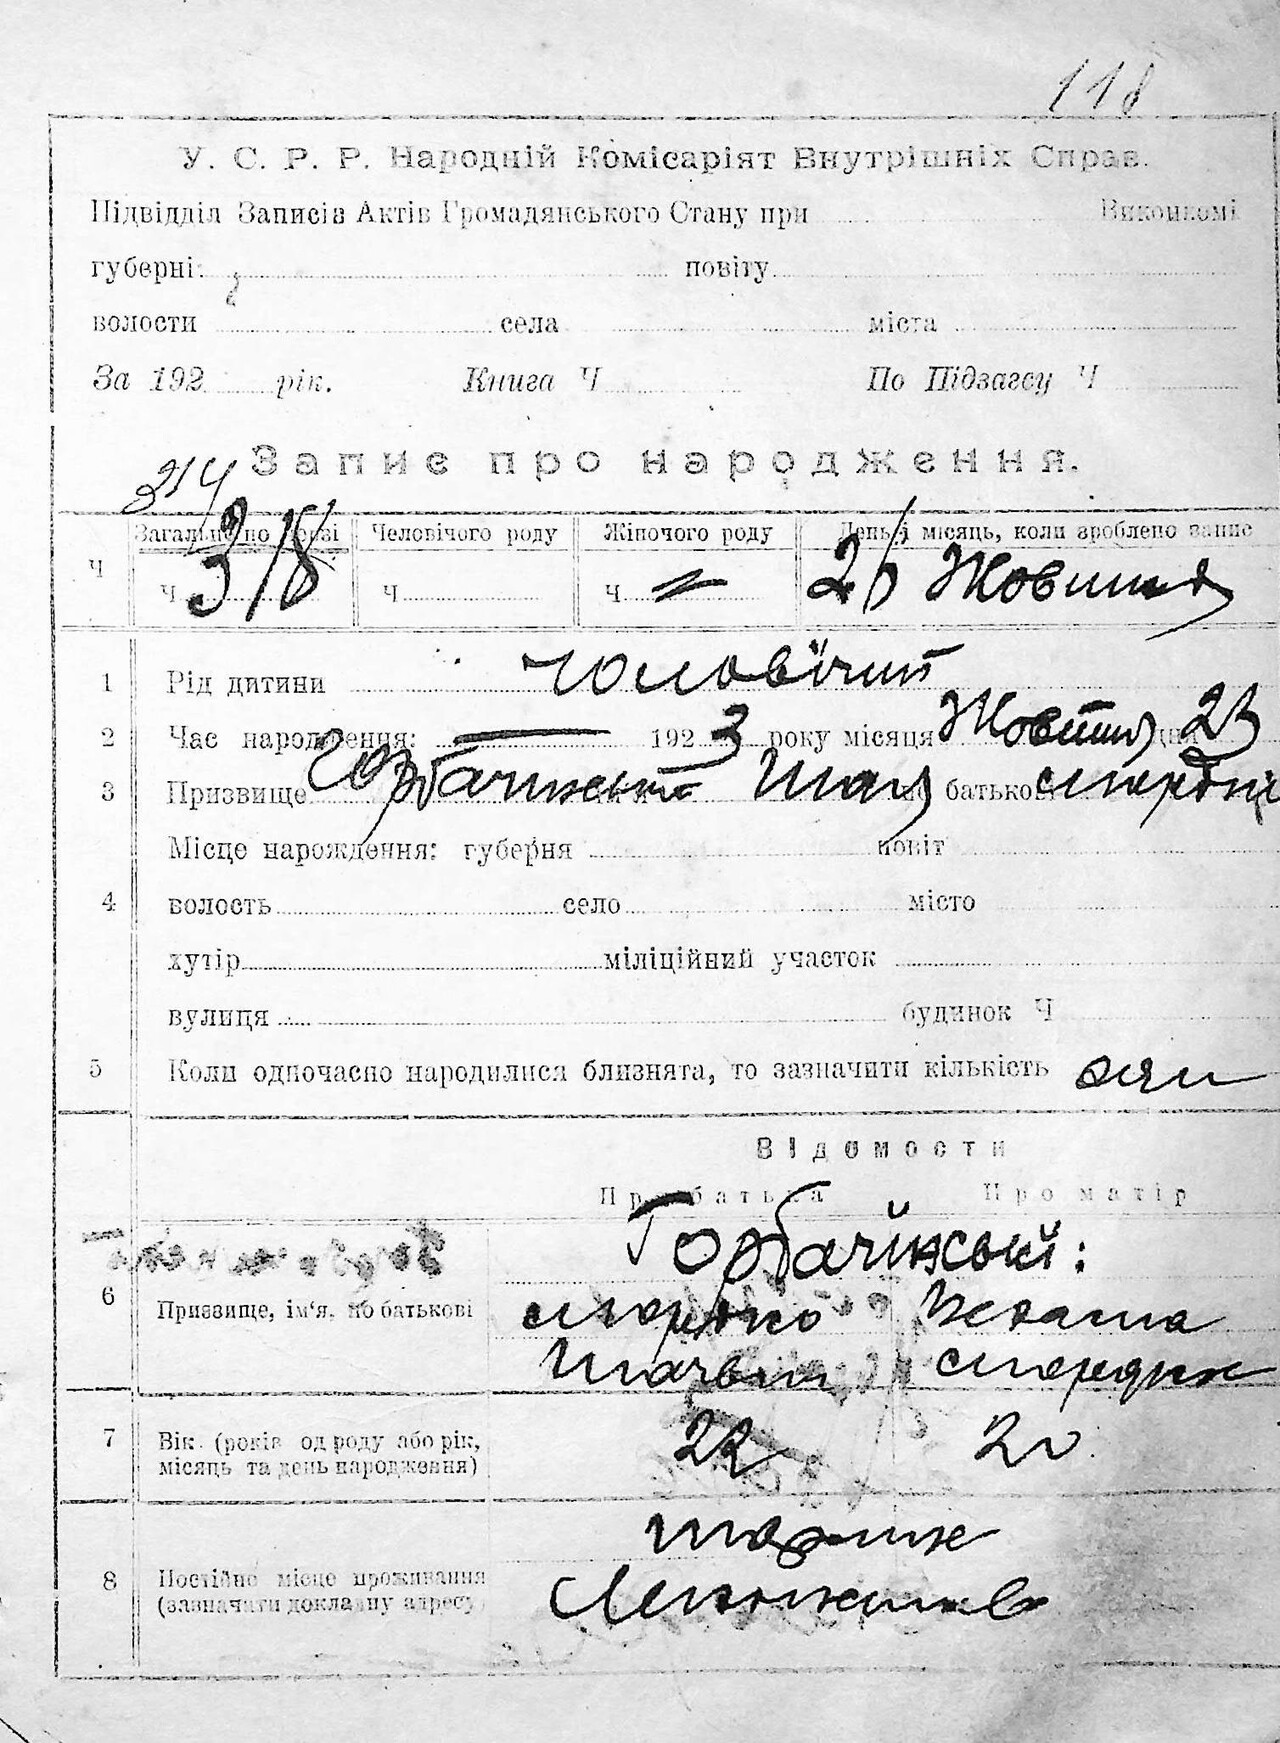 118
У. С. Р. Р. Народній Комісаріят Внутрішніх Справ.
Підвідділ Записів Актів Громадянського Стану при Виконкомі
губерні повіту
волости села міста
За 192 рік. Книга Ч По Підзагсу Ч
314 Запис про народження.
Загальне по Человічого роду Жіночого роду День і місяць, коли зроблено запис
Ч Ч 318 Ч Ч = 26 Жовтня
1 Рід дитини чоловічий
2 Час народження: 1923 року місяця Жовтня дня 23
3 Призвище Горбачинський по батькові
Місце нарождення: губерня повіт
4 волость село місто
хутір міліційний участок
вулиця будинок Ч
5 Коли одночасно народилися близнята, то зазначити кількість
Відомости
Про батька Про матір
Горбачинські:
6 Призвище, ім'я, по батькові
7 Вік (років од роду або рік, 22 20
місяць та день народження)
8 Постійне місце проживання
(зазначити докладну адресу